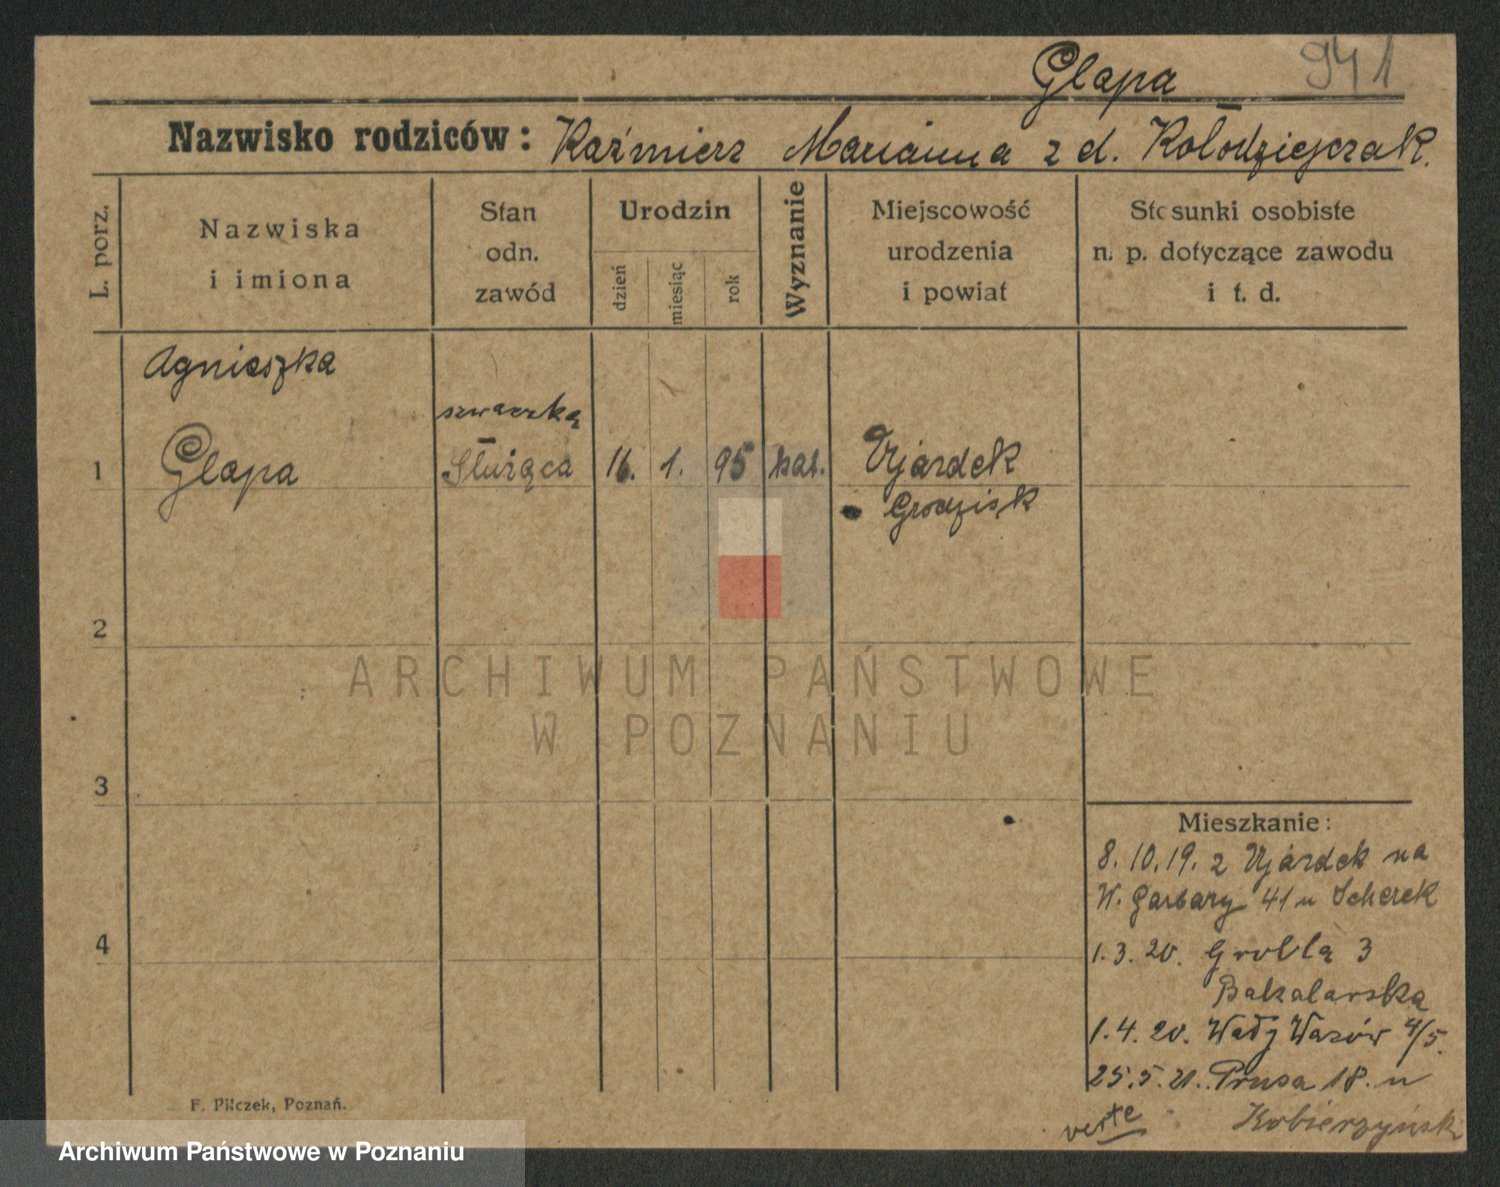 Glapa 941
Nazwisko rodziców: Kaźmierz Marianna z d. Kołodziejczak.
L. porz.
Nazwiska
i imiona
Stan
odn.
zawód
Urodzin
dzień
miesiąc
rok
Wyznanie
Miejscowość
urodzenia
i powiat
Stosunki osobiste
n. p. dotyczące zawodu
i t. d.
Agnieszka
szwaczka
1 Glapa Służąca 16. 1. 95 kat. Ujazdek
Grodzisk
2
3
4
Mieszkanie:
8. 10. 19. z Ujazdek na
W. Garbary 41 u Scherek
1. 3. 20. Grobla 3
Bakalarska
1. 4. 20. Wały Wazów 4/5.
25. 5. 21. Prusa 18. u
verte Kobierzyński
F. Pilczek, Poznań.
ARCHIWUM PAŃSTWOWE
W POZNANIU
Archiwum Państwowe w Poznaniu